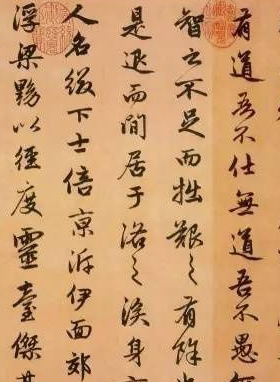 有道吾不仕無道吾不愚
智之不足而拙艱之有餘
是退而閒居于洛之涘身
人名綴下士倍京泝伊面郊
浮梁黝以徑度靈臺傑其